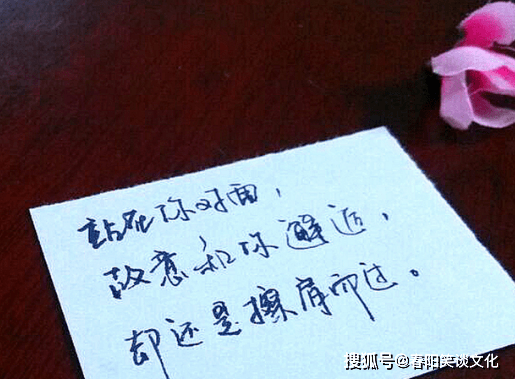 站在你对面，
故意和你邂逅，
却还是擦肩而过。
搜狐号@春阳笑谈文化